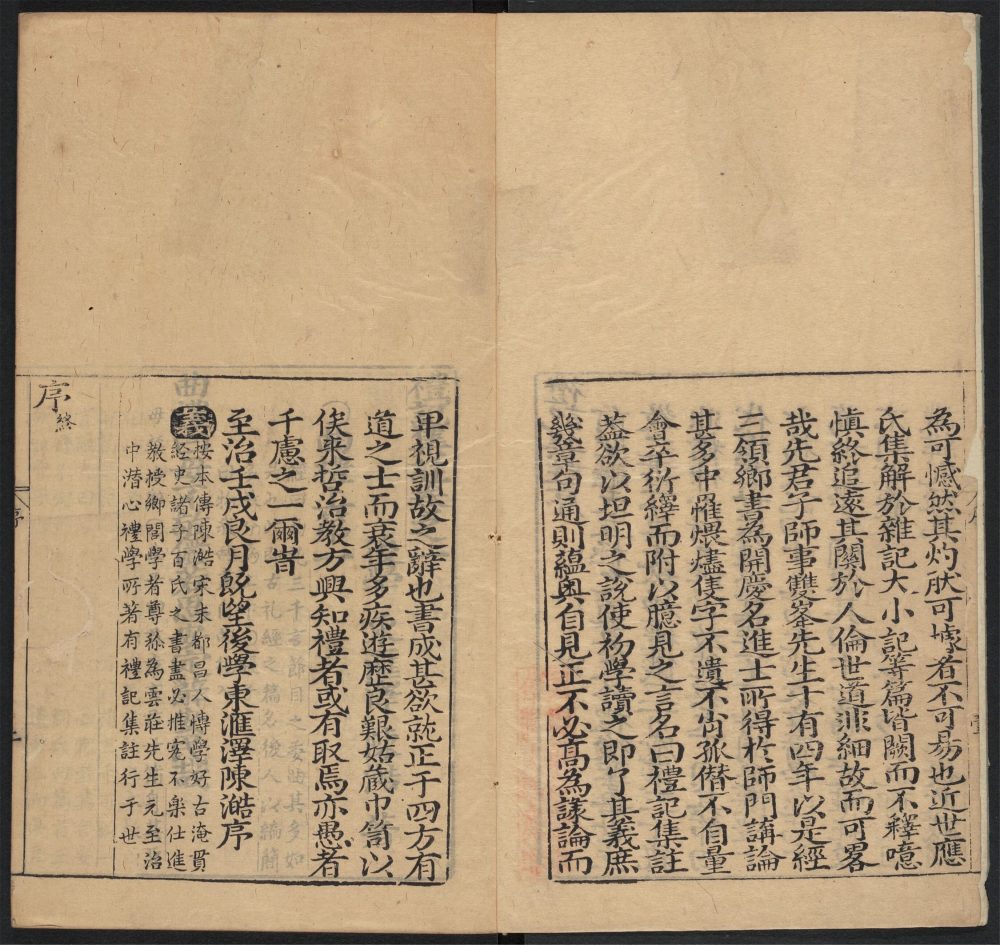 為可憾然其灼然可㨿者不可易也近世應
氏集解於雜記大小記等篇皆闕而不釋噫
慎終追遠其關於人倫世道非細故而可畧
哉先君子師事雙峯先生十有四年以是經
三領鄉書為開慶名進士所得於師門講論
甚多中罹煨燼隻字不遺不肖孤僣不自量
會卒衍繹而附以臆見之言名曰禮記集註
葢欲以坦明之說使初學讀之即了其義庶
幾章句通則蘊奥自見正不必高為議論而
卑視訓故之辭也書成甚欲就正于四方有
道之士而衰年多疾遊歴良艱姑藏巾笥以
俟来哲治教方興知禮者或有取焉亦愚者
千慮之一爾旹
至治壬戌良月既望後學東滙澤陳澔序
義
按本傳陳澔宋末都昌人慱學好古淹貫
經史諸子百氏之書盡必推究不樂仕進
教授鄉閭學者尊稱為雲莊先生元至治
中潜心禮學所著有禮記集註行于世
序終
序